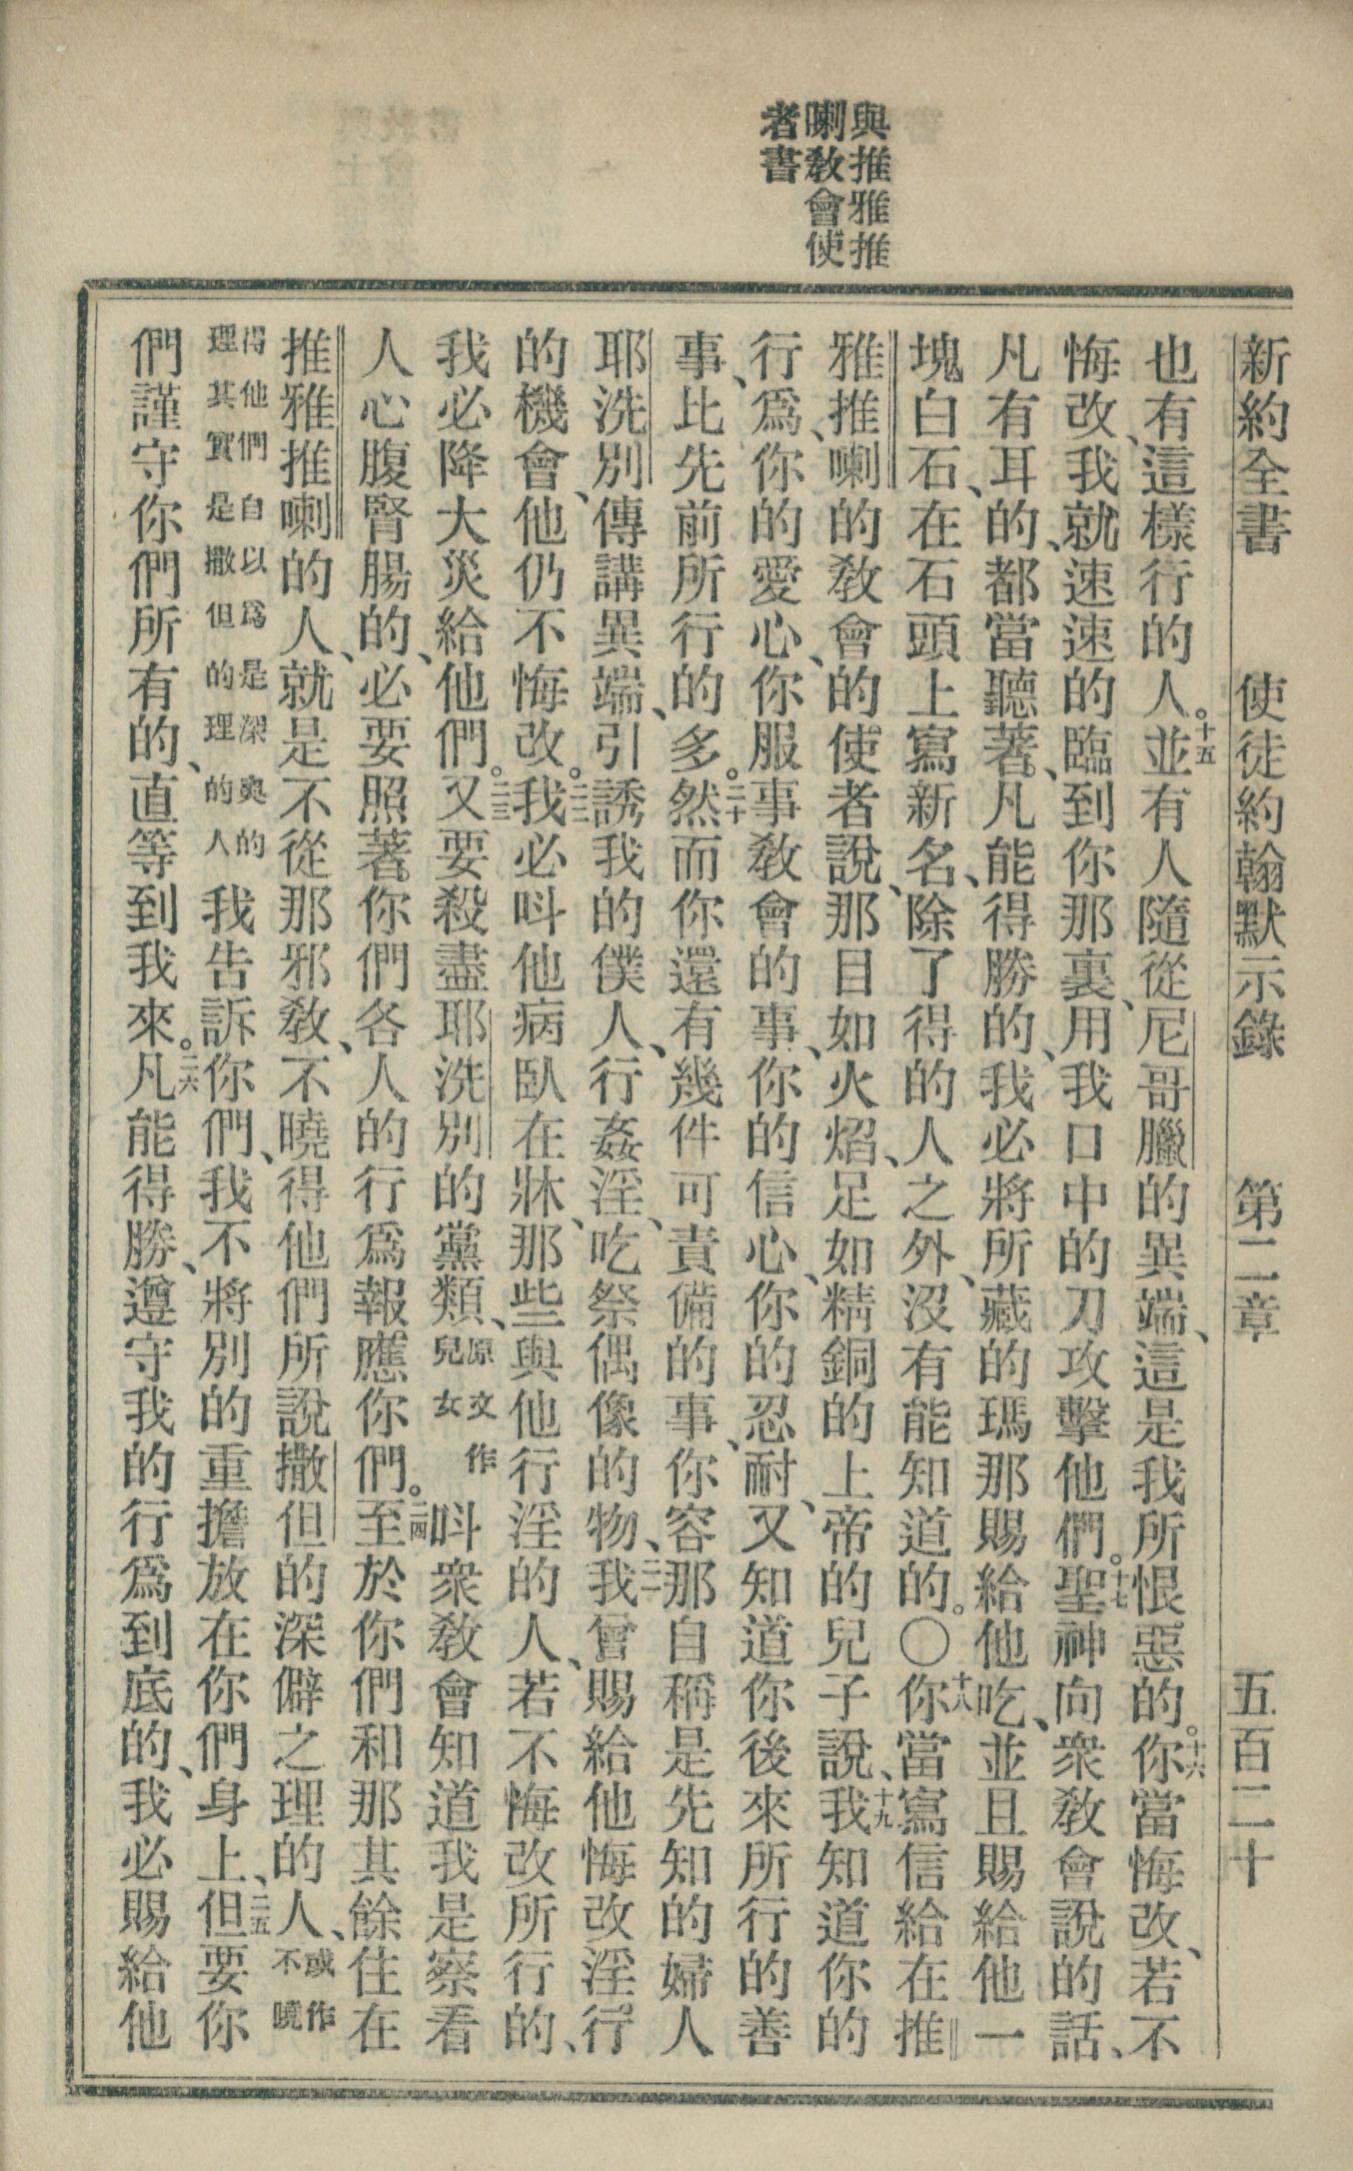 與推雅推
喇教會使
者書
新約全書 使徒約翰默示錄 第二章 五百二十
也有這樣行的人。十五並有人隨從尼哥臘的異端、這是我所恨惡的。十六你當悔改、若不
悔改、我就速速的臨到你那裏、用我口中的刀攻擊他們。十七聖神向衆教會說的話、
凡有耳的、都當聽著、凡能得勝的、我必將所藏的瑪那賜給他吃、並且賜給他一
塊白石、在石頭上寫新名、除了得的人之外、沒有能知道的。〇十八你當寫信給在推
雅推喇的教會的使者說、那目如火焰、足如精銅的上帝的兒子說、十九我知道你的
行爲、你的愛心、你服事教會的事、你的信心、你的忍耐、又知道你後來所行的善
事、比先前所行的多。二十然而你還有幾件可責備的事、你容那自稱是先知的婦人
耶洗別傳講異端、引誘我的僕人、行姦淫、吃祭偶像的物、二一我曾賜給他悔改淫行
的機會、他仍不悔改。二二我必呌他病臥在牀、那些與他行淫的人、若不悔改所行的、
我必降大災給他們。二三又要殺盡耶洗別的黨類、原文作兒女呌衆教會知道我是察看
人心腹腎腸的、必要照著你們各人的行爲報應你們。二四至於你們和那其餘住在
推雅推喇的人、就是不從那邪教、不曉得他們所說撒但的深僻之理的人、或作不曉
得他們自以爲是深奧的理其實是撒但的理的人我告訴你們、我不將別的重擔放在你們身上、二五但要你
們謹守你們所有的、直等到我來。二六凡能得勝、遵守我的行爲到底的、我必賜給他